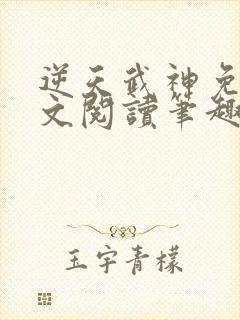 逆天武神免
文閱讀筆趣
玉宇青檬